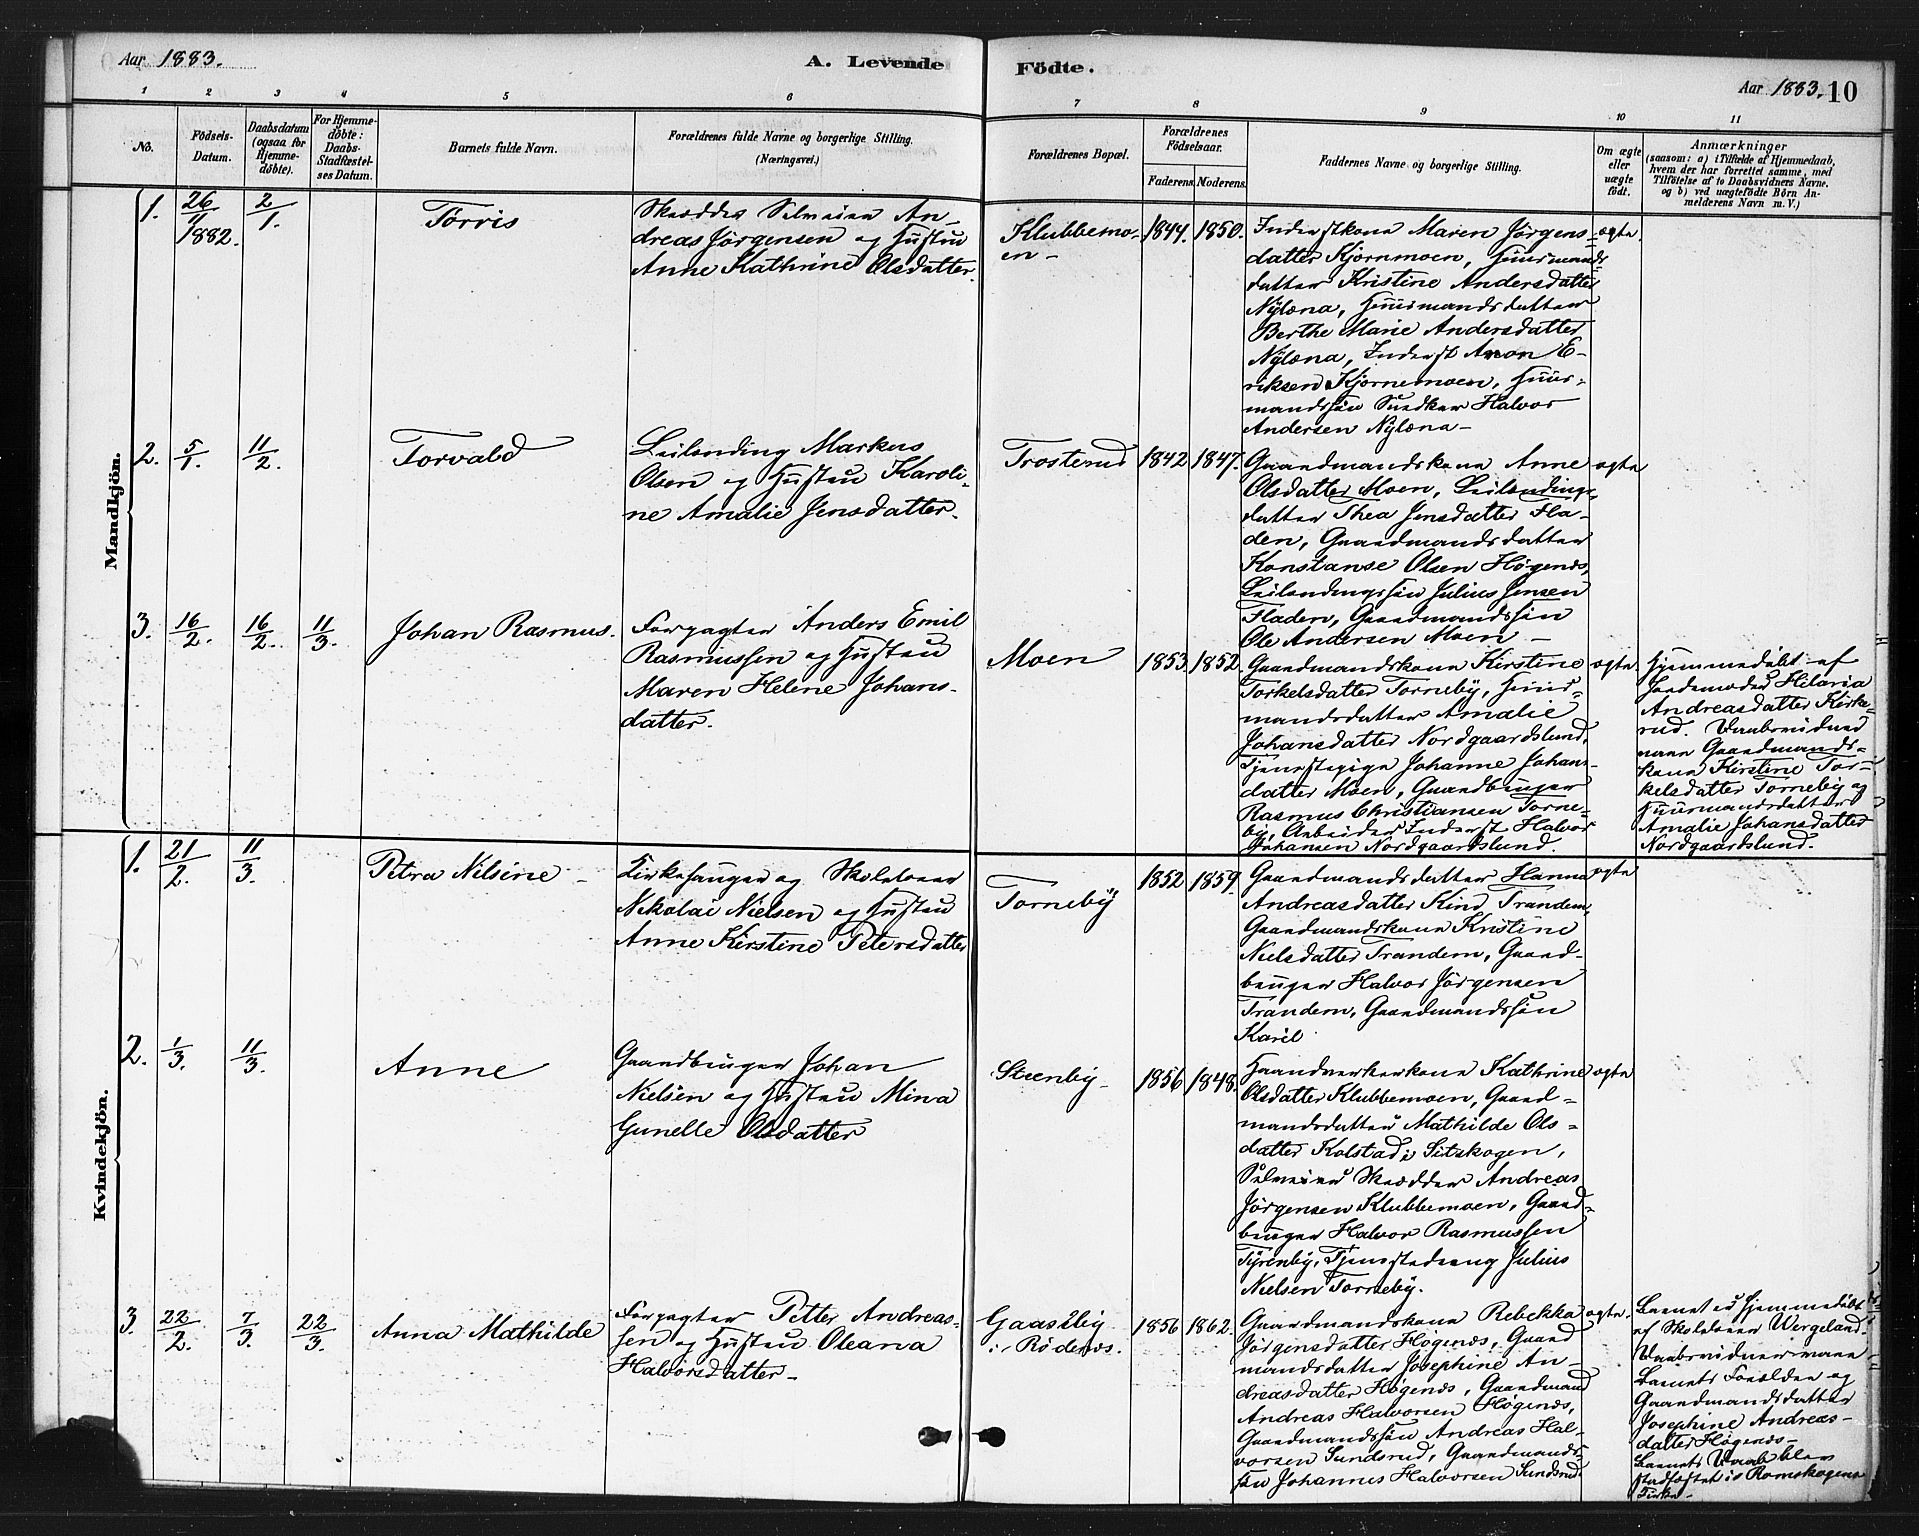 Aar 1883.
A. Levende Födte.
Aar 1883. 10
1 2 3 4 5 6 7 8 9 10 11
No.
Födsels-
Datum.
Daabsdatum
(ogsaa for
Hjemme-
döbte).
For Hjemme-
döbte:
Daabs-
Stadfæstel-
ses Datum.
Barnets fulde Navn.
Forældrenes fulde Navne og borgerlige Stilling.
(Næringsvei.)
Forældrenes Bopæl.
Forældrenes
Födselsaar.
Faderens. Moderens.
Faddernes Navne og borgerlige Stilling.
Om ægte
eller
uægte
födt.
Anmærkninger
(saasom: a) i Tilfælde af Hjemmedaab,
hvem der har forrettet samme, med
Tilföielse af to Daabsvidners Navne.
og b) ved uægtefödte Börn An-
melderens Navn m. V.)
Mandkjön.
1. 26/11 1882. 2/1.
Torvis
Skrædder Selveier An-
dreas Jørgensen og Hustru
Anne Kathrine Olsdatter.
Klubbemo-
en -
1844. 1850.
Inderstkone Maren Jørgens-
datter Kjørnmoen, Huusmands-
datter Kristine Andersdatter
Nÿlæna, Huusmandsdatter
Berthe Marie Andersdatter
Nÿlæna, Inderst Amon E-
riksen Kjørnemoen, Huus-
mandssøn Snedker Halvor
Andersen Nÿlæna -
ægte.
2. 5/1. 11/2.
Torvald
Leilænding Markus
Olsen og Hustru Karoli-
ne Amalie Jensdatter.
Trosterud
1842 1847.
Gaardmandskone Anne
Olsdatter Moen, Leilændings-
datter Thea Jensdatter Fla-
den, Gaardmandsdatter
Konstanse Olsen Høgenæs,
Leilændingssøn Julius Jensen
Fladen, Gaardmandssøn
Ole Andersen Moen -
ægte
3. 16/2. 16/2. 11/3.
Johan Rasmus.
Forpagter Anders Emil
Rasmussen og Hustru
Maren Helene Johans-
datter.
Moen
1853. 1852.
Gaardmandskone Kirstine
Torkelsdatter Tornebÿ, Huus-
mandsdatter Amalie
Johansdatter Nordgaardslund,
Tjenestepige Johanne Johans-
datter Moen, Gaardbruger
Rasmus Christiansen Torne-
bÿ, Arbeider Inderst Halvor
Johansen Nordgaardslund.
ægte.
Hjemmedøbt af
Jordemoder Hilaria
Andreasdatter Kirke-
rud. Daabsvidner
vare Gaardmands-
kone Kirstine Tor-
kelsdatter Tornebÿ og
Huusmandsdatter
Amalie Johansdatter
Nordgaardslund.
Kvindekjön.
1. 21/2. 11/3.
Petra Nilsine -
Kirkesanger og Skolelærer
Nikolai Nielsen og Hustru
Anne Kirstine Petersdatter
Tornebÿ
1852 1859.
Gaardmandsdatter Hanna
Andreasdatter Kind Trandem,
Gaardmandskone Kristine
Nielsdatter Trandem, Gaard-
bruger Halvor Jørgensen
Trandem, Gaardmandssøn
Karil
ægte
2. 1/3. 11/3.
Anne
Gaardbruger Johan
Nielsen og Hustru Mina
Gunelle Olsdatter
Steenby -
1856 1848.
Haandverkerkone Kathrine
Olsdatter Klubbemoen, Gaard-
mandsdatter Mathilde Ols-
datter Kolstad i Sitskogen,
Selveier Skrædder Andreas
Jørgensen Klubbemoen, Gaard-
bruger Halvor Rasmussen
Tÿrenbÿ, Tjenestedreng Julius
Nielsen Tornebÿ.
ægte
3. 22/2. 7/3. 22/3.
Anna Mathilde
Forpagter Petter Andreas-
sen og Hustru Oleana
Halvorsdatter -
Gaasebÿ
i Rødenæs.
1856 1862.
Gaardmandskone Rebekka
Jørgensdatter Høgenæs, Gaard
mandsdatter Josephine An-
dreasdatter Høgenæs, Gaardmand
Andreas Halvorsen Høgenæs,
Gaardmandssøn Andreas Hal-
vorsen Sundsrud, Gaardmands-
søn Johannes Halvorsen Sundsrud.
ægte.
Barnet er Hjemmedøbt
af Skolelærer Wergeland.
Daabsvidner vare
Barnets Forældre og
Gaardmandsdatter
Josephine Andreas-
datter Høgenæs -
Barnets Daab blev
stadfæstet i Romskogens
Kirke -